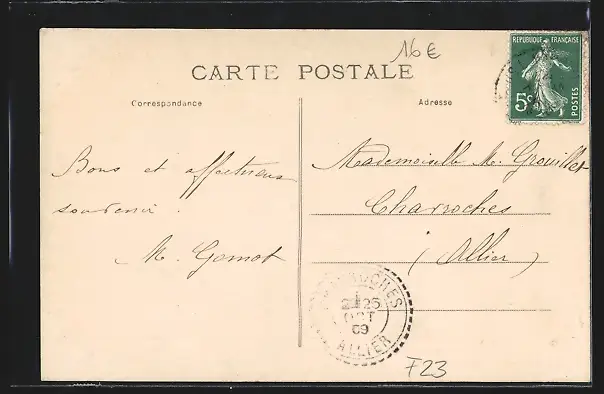 16€
CARTE POSTALE
REPUBLIQUE FRANÇAISE
5c
POSTES
Correspondance
Adresse
Bons et affectueux
souvenir.
M. Gomot
Mademoiselle M. Grouillet
Charroches
(Allier)
25
OCT
09
ALLIER
F23